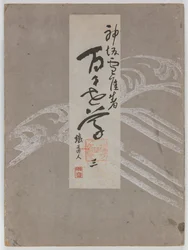 神坂雪佳著
百々世草
三